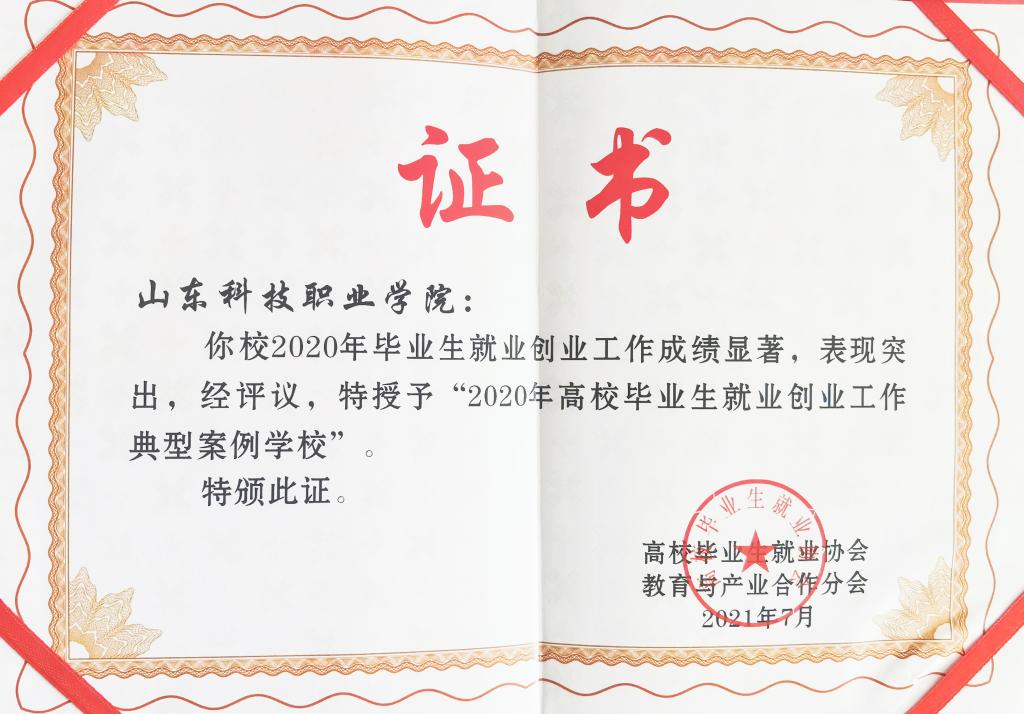 证书
山东科技职业学院：
你校2020年毕业生就业创业工作成绩显著，表现突
出，经评议，特授予“2020年高校毕业生就业创业工作
典型案例学校”。
特颁此证。
高校毕业生就业协会
高校毕业生就业协会
教育与产业合作分会
2021年7月